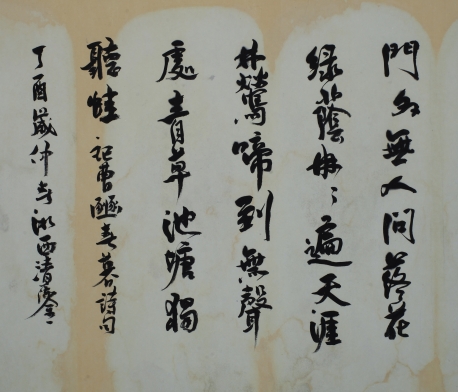 門外無人問落花
綠蔭冉〻遍天涯
林鶯啼到無聲
處青草池塘獨
聽蛙 記曹豳春暮詩句
丁酉歲仲冬浙西